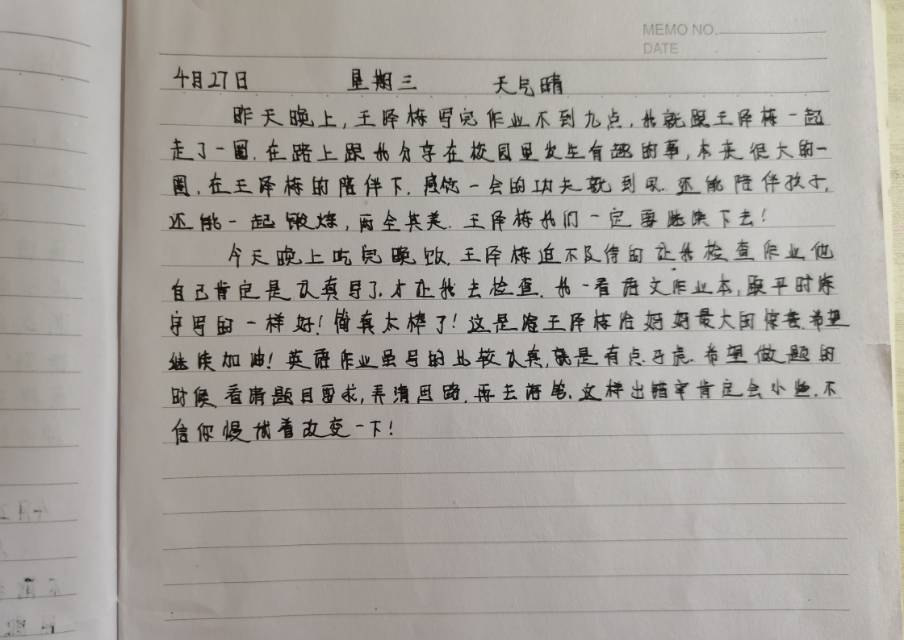 MEMO NO.
DATE
4月27日 星期三 天气晴
昨天晚上,王泽栋写完作业不到九点,我就跟王泽栋一起
走了一圈.在路上跟我分享在校园里发生有趣的事,本来很大的一
圈,在王泽栋的陪伴下,感觉一会的功夫就到了.还能陪伴孩子,
还能一起锻炼,两全其美.王泽栋我们一定要继续下去!
今天晚上吃完晚饭,王泽栋迫不及待的让我检查作业他
自己肯定是认真写了,才让我去检查.我一看语文作业本,跟平时练
字写的一样好!简直太棒了!这是王泽栋给妈妈最大的惊喜.希望
继续加油!英语作业虽写的比较认真,就是有点马虎.希望做题的
时候看清题目要求,弄清思路,再去落笔.这样出错率肯定会小些.不
信你慢试着改变一下!